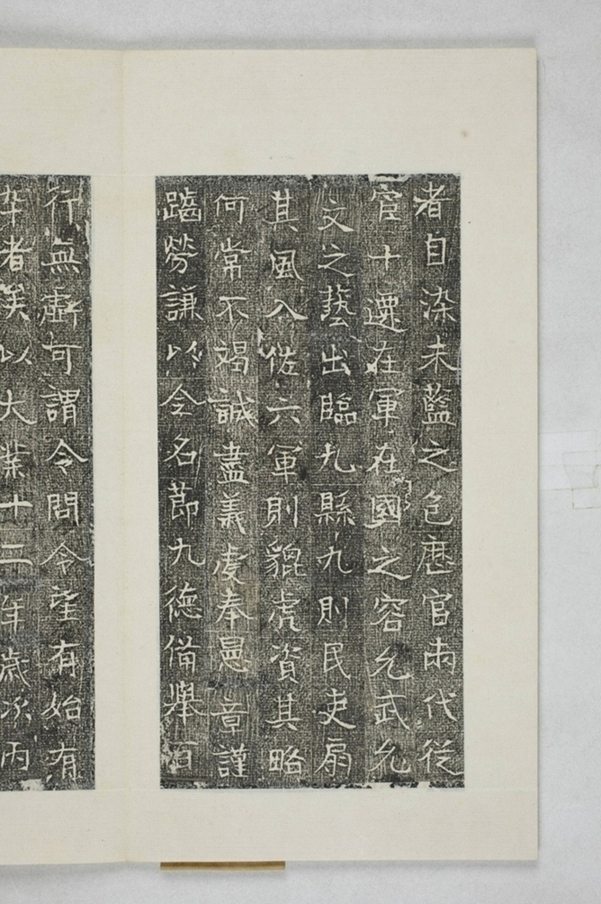 者自染未藍之色歷官兩代從
宦十遷在軍在國之容允武允
文之藝出臨九縣九則民吏扇
其風入佐六軍則貔虎資其略
何常不竭誠盡義虔奉憲章謹
蹈勞謙以全名節九德備舉百
行無虧可謂令問令望有始有
卒者矣以大業十二年歲次丙